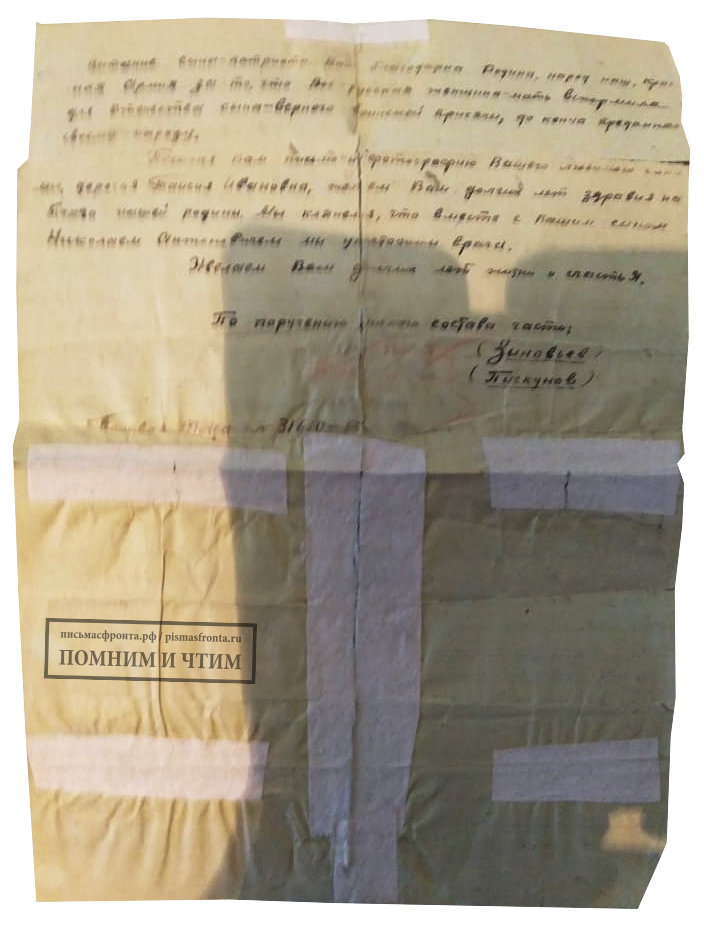 сына-патриота. Вам благодарна Родина, народ наш, Крас-
ная Армия за то, что Вы русская женщина-мать вскормила
для отечества сына-верного воинской присяги, до конца преданного
своему народу.
Вам письмо и фотографию Вашего любимого
мы, дорогая Таисия Ивановна, желаем Вам долгих лет здравия на
благо нашей родины. Мы клянемся, что вместе с Вашим сыном
Николаем мы уничтожим врага.
Желаем Вам долгих лет жизни и счастья.
По поручению личного состава части:
(Зиновьев)
(Пискунов)
Полевая почта
письмасфронта.рф / pismasfronta.ru
ПОМНИМ И ЧТИМ